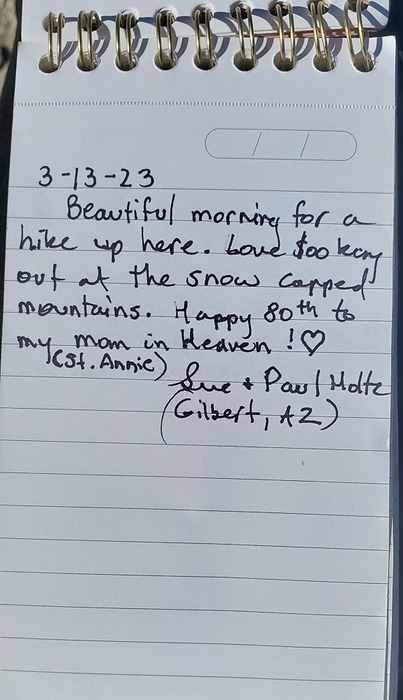 3-13-23
Beautiful morning for a
hike up here. Love
out at the snow capped
mountains. Happy 80th to
my mom in Heaven !♡
(St. Annie)
Sue + Paul Holtz
(Gilbert, AZ)